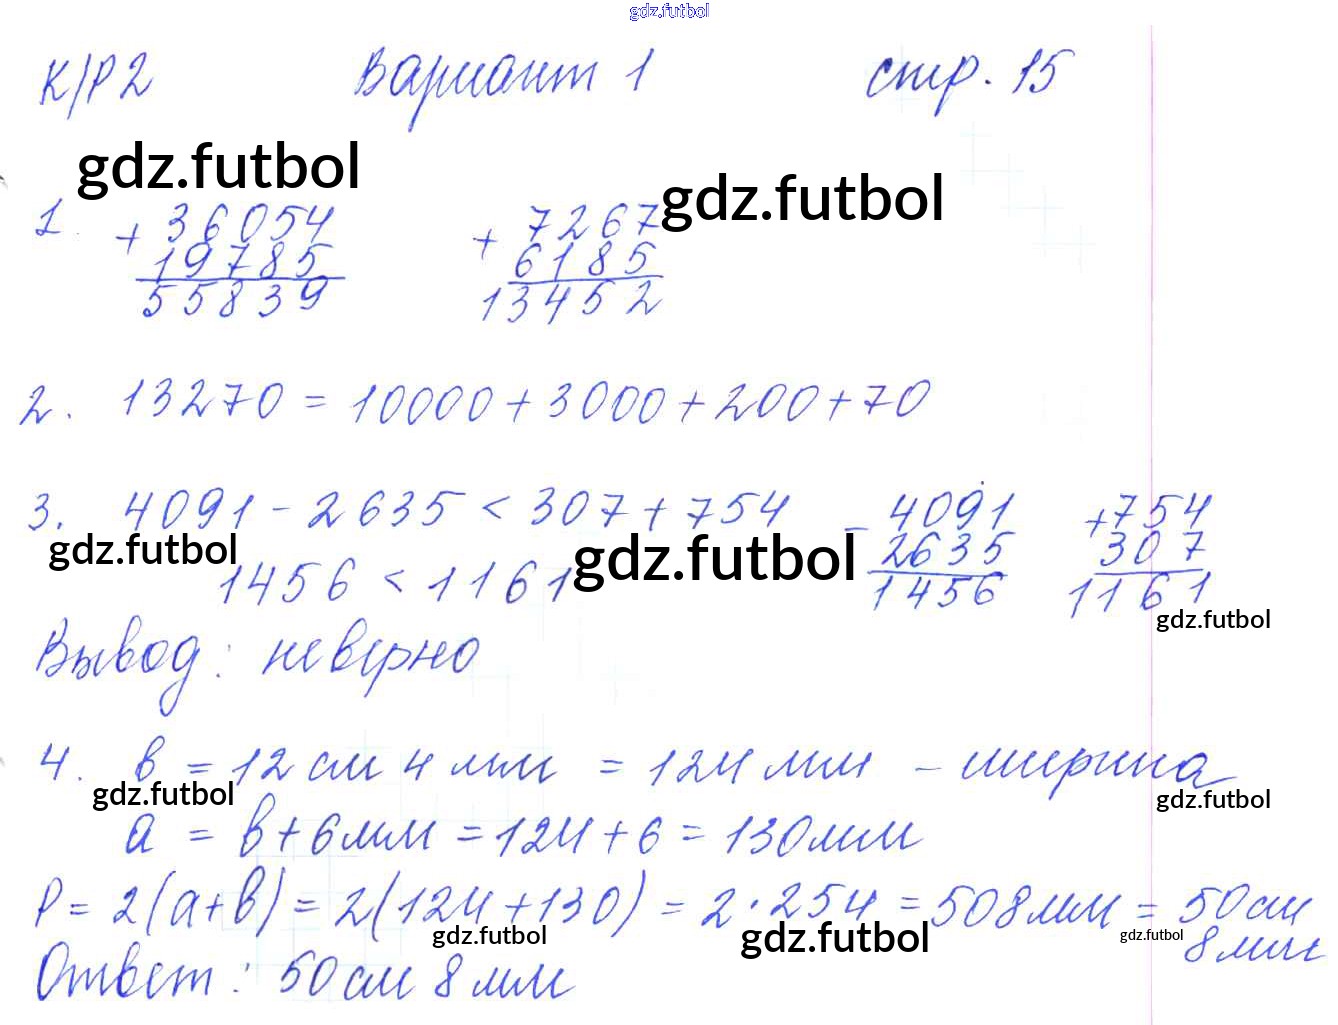 gdz.futbol
К/Р2 Вариант 1 стр. 15
gdz.futbol gdz.futbol
1. + 36054 + 7267
19785 6185
55839 13452
2. 13270 = 10000 + 3000 + 200 + 70
3. 4091 - 2635 < 307 + 754 - 4091 + 754
gdz.futbol gdz.futbol 2635 307
1456 < 1161 1456 1161
gdz.futbol
Вывод: неверно
4. в = 12 см 4 мм = 124 мм - ширина
gdz.futbol gdz.futbol
а = в + 6 мм = 124 + 6 = 130 мм
P = 2(а+в) = 2(124+130) = 2·254 = 508 мм = 50 см
gdz.futbol gdz.futbol gdz.futbol 8 мм
Ответ: 50 см 8 мм